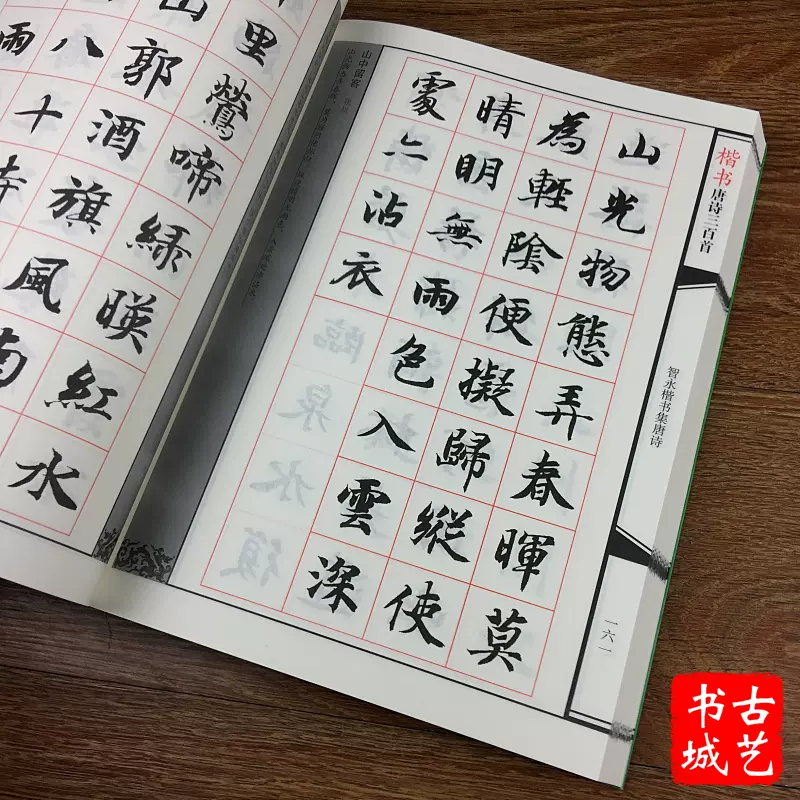 里鶯啼綠暎紅水
山郭酒旗風南
八十寺
雨
楷书唐诗三百首
智永楷书集唐诗
一六一
山光物態弄春暉莫
為輕陰便擬歸縱使
晴明無雨色入雲深
處亦沾衣
山中留客
古艺
书城